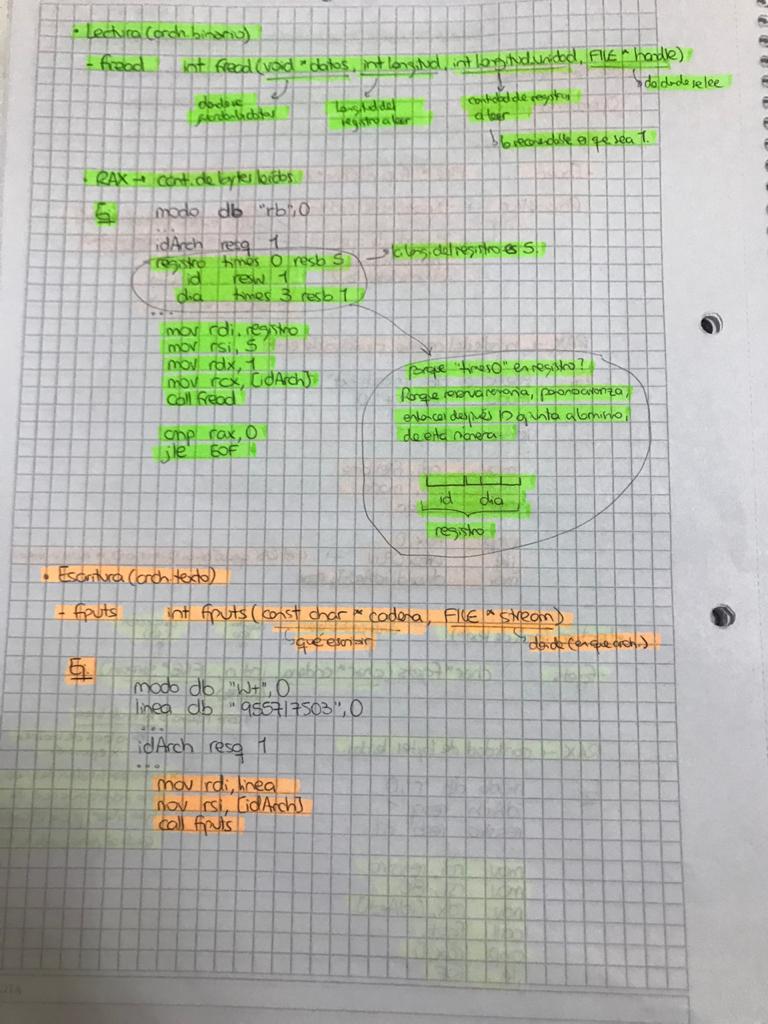 • Lectura (arch. binario)
- fread int fread (void * datos, int longitud, int longitudunidad, FILE * handle)
donde se guardan los datos
longitud del registro a leer
cantidad de registros a leer
de donde se lee
lo recomendable es que sea 1.
• RAX → cant. de bytes leídos.
Ej. modo db "rb",0
...
idArch resq 1
registro times 0 resb 5 → la long. del registro es 5.
id resw 1
dia times 3 resb 1
...
mov rdi, registro
mov rsi, 5
mov rdx, 1
mov rcx, [idArch]
call fread
cmp rax, 0
jle EOF
Porque "times 0" en registro?
Porque reserva memoria, pero no avanza,
entonces después lo que
de esta manera:
id dia
registro
• Escritura (arch. texto)
- fputs int fputs (const char * cadena, FILE * stream)
qué escribir
donde (en que arch.)
Ej.
modo db "w+",0
linea db "955717503",0
...
idArch resq 1
...
mov rdi, linea
mov rsi, [idArch]
call fputs